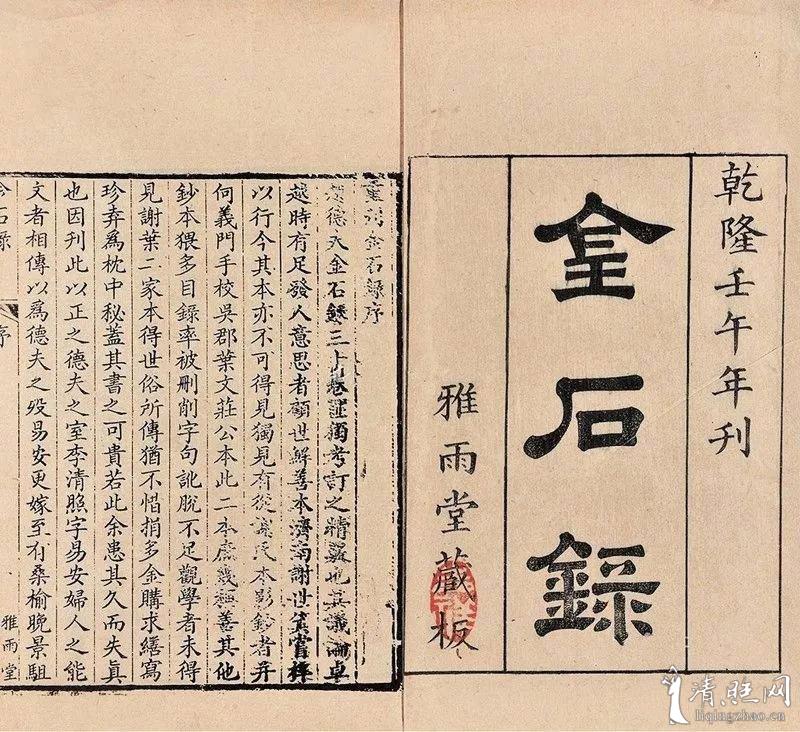 乾隆壬午年刊
金石錄
雅雨堂藏板
重刊金石錄序
趙德夫金石錄三十卷匪獨考訂之精覈也其議論卓
越時有足發人意思者顧世解善本濟南謝世箕嘗梓
以行今其本亦不可得見獨見有從謝氏本影鈔者并
何義門手校吳郡葉文莊公本此二本庶幾稱善其他
鈔本猥多目錄率被刪削字句訛脫不足觀學者未得
見謝葉二家本得世俗所傳猶不惜捐多金購求繕寫
珍弆為枕中秘蓋其書之可貴若此余患其久而失真
也因刊此以正之德夫之室李清照字易安婦人之能
文者相傳以為德夫之歿易安更嫁至有桑榆晚景駔
雅雨堂
金石錄
序
清照网
liqingzhao.cn